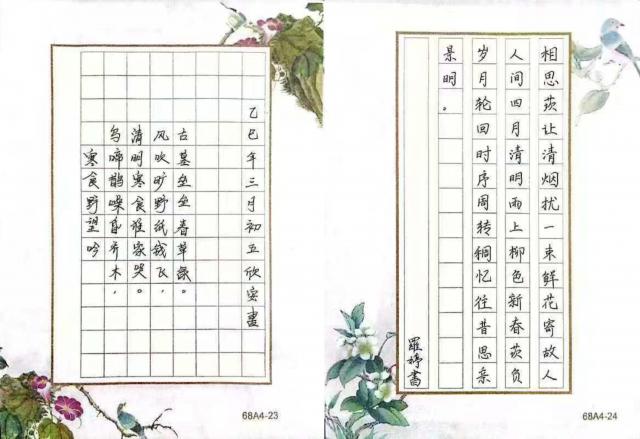 寒食野望吟
乌啼鹊噪昏乔木，
清明寒食谁家哭。
风吹旷野纸钱飞，
古墓垒垒春草绿。
乙巳年三月初五欣安書
68A4-23
相思莰让清烟扰一束鲜花寄故人
人间四月清明雨上柳色新春莰负
岁月轮回时序周转稠忆往昔思亲
景明。
羅婷書
68A4-24